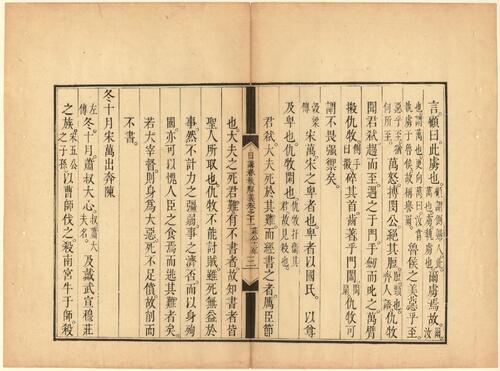 言顧曰此虜也爾虜焉故
魯侯之美惡乎至惡乎至猶
何所至萬怒搏閔公絕其脰脰頸也齊人語仇牧
聞君弒趨而至遇之于門手劍而叱之萬臂
摋仇牧側手曰摋碎其首齒著乎門闔闔扇仇牧可
謂不畏彊禦矣
穀梁傳宋萬宋之卑者也卑者以國氏以尊
及卑也仇牧閑也仇牧扞衛其君故見殺也
君弒大夫死於其難而經書之者厲臣節
日講春秋解義
也大夫之死君難有不書者故知書者皆
聖人所取也仇牧不能討賊雖死無益於
事然不計力之强弱事之濟否而以身殉
國亦可以愧人臣之食焉而逃其難者矣
若大宰督則身為大惡死不足償故削而
不書
冬十月宋萬出奔陳
左傳冬十月蕭叔大心叔蕭大夫名及戴武宣穆莊
之族宋五公之子孫以曹師伐之殺南宮牛于師殺